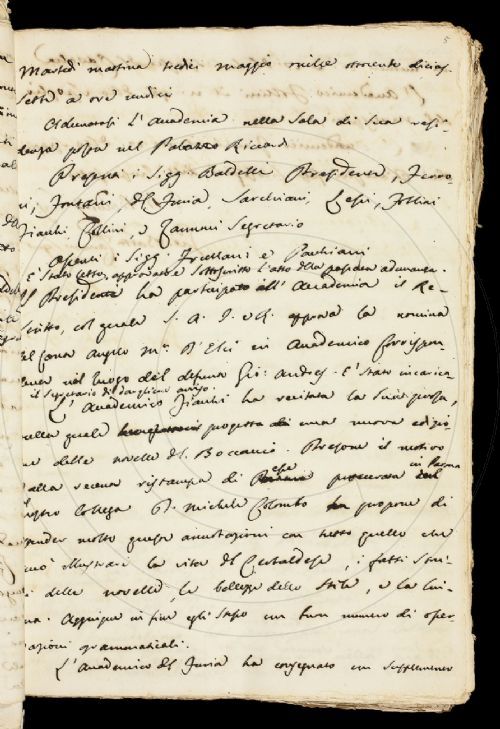 5
Martedì mattina tredici maggio mille ottocento dicias
sette a ore undici
Adunatasi l'Accademia nella Sala di sua resi
denza posta nel Palazzo Riccardi
Presenti i Sigg. Baldelli Presidente, Ferro
ni, Fontani, del Furia, Sarchiani, Lessi, Follini
Fiacchi, Collini, e Zannoni Segretario
Assenti i Sigg. Frullani e Pachiani
È stato letto, approvato e sottoscritto l'atto della passata adunanza.
Il Presidente ha participato all'Accademia il Re
scritto, col quale S. A. I. e R. approva la nomina
del Canon Angelo M.ª D'Elci in Accademico Corrispon
dente nel luogo del defunto Gio: Andres. È stato incarica
il Segretario di dargliene avviso.
L'Accademico Fiacchi ha recitata la sua prosa,
nella quale progetta una nuova edizio
ne delle novelle del Boccaccio. Presone il motivo
dalla recente ristampa di esse procurata in Parma dal
nostro Collega D. Michele Colombo propone di
render molto questa annotazioni con tutto quello che
può illustrare la vita del Certaldese, i fatti stori
ci delle novelle, le bellezze dello stile, e la lin
gua. Aggiugne in fine egli stesso un buon numero di osser
vazioni grammaticali.
L'Accademico del Furia ha consegnato un supplemento